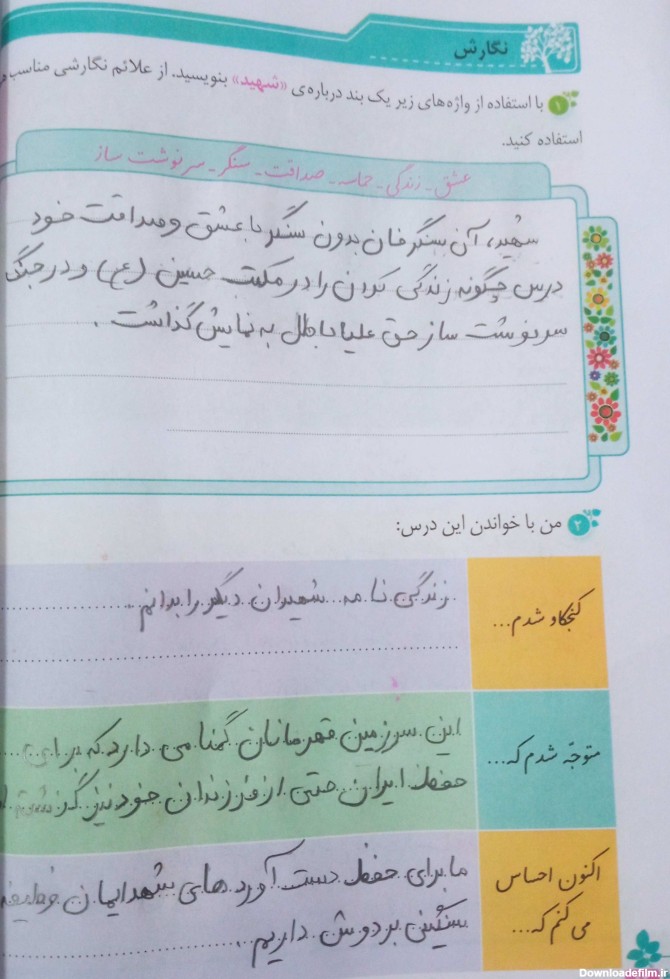 نگارش
۱ با استفاده از واژه‌های زیر یک بند درباره‌ی «شهید» بنویسید. از علائم نگارشی مناسب
استفاده کنید.
عشق - زندگی - حماسه - صداقت - سنگر - سرنوشت ساز
شهید، آن سنگربان بدون سنگر با عشق و صداقت خود
درس چگونه زندگی کردن را در مکتب حسین (ع) و در جنگ
سرنوشت ساز حق علیه باطل به نمایش گذاشت.
۲ من با خواندن این درس:
کنجکاو شدم...
زندگی نامه شهیدان دیگر را بدانم
متوجّه شدم که...
این سرزمین قهرمانان گمنامی دارد که برای
حفظ ایران حتی از فرزندان خود نیز گذشتند
اکنون احساس
می کنم که...
ما برای حفظ دست آورد های شهدایمان وظیفه
سنگینی بر دوش داریم.
Downloadefilm.ir